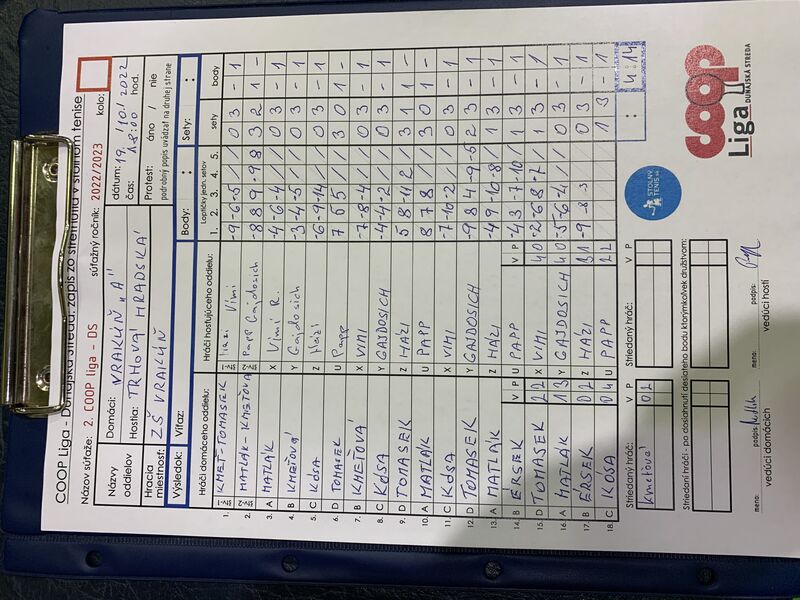 COOP Liga - Dunajská Streda: zápis zo stretnutia v stolnom tenise
Názov súťaže: 2. COOP liga - DS súťažný ročník: 2022/2023 kolo:
Názvy oddielov Domáci: VRAKÚŇ „A" dátum: 19. 10. 2022
Hostia: TRHOVÁ HRADSKÁ čas: 18:00 hod.
Hracia miestnosť: ZŠ VRAKÚŇ Protest: áno / nie
podrobný popis uvádzať na druhej strane
Výsledok: Víťaz: Body: : Sety: :
Hráči domáceho oddielu: Hráči hosťujúceho oddielu: Loptičky jedn. setov sety body
1. 2. 3. 4. 5.
1. KMEŤ-TOMASEK Vimi -9 -6 -5 / / 0 3 - 1
2. MATLÁK-KMEŤOVÁ Papp Gajdosich 8 8 9 -9 8 3 2 1 -
3. A MATLÁK X Vimi R. -4 -6 -4 / / 0 3 - 1
4. B KMEŤOVÁ Y Gajdosich -3 -4 -5 / / 0 3 - 1
5. C KÓSA Z Házi -6 -9 -14 / / 0 3 - 1
6. D TOMASEK U Papp 7 6 5 / / 3 0 1 -
7. B KMEŤOVÁ X VIMI -7 -8 -4 / / 0 3 - 1
8. C KÓSA Y GAJDOSICH -4 -4 -2 / / 0 3 - 1
9. D TOMASEK Z HÁZI 5 8 -11 2 / 3 1 1 -
10. A MATLÁK U PAPP 8 7 8 / / 3 0 1 -
11. C KÓSA X VIMI -7 -10 -2 / / 0 3 - 1
12. D TOMASEK Y GAJDOSICH -9 8 4 -9 -5 2 3 - 1
13. A MATLÁK Z HÁZI -4 9 -10 -8 / 1 3 - 1
V P V P
14. B ÉRSEK U PAPP -4 3 -7 -10 / 1 3 - 1
15. D TOMASEK 2 2 X VIMI 4 0 -2 -6 8 -7 / 1 3 - 1
16. A MATLÁK 1 3 Y GAJDOSICH 4 0 -5 -6 -4 / / 0 3 - 1
17. B ÉRSEK 0 2 Z HÁZI 3 1 -9 -8 -3 0 3 - 1
18. C KÓSA 0 4 U PAPP 2 2 1 3 - 1
Striedaný hráč: V P Striedaný hráč: V P
Kmeťová 0 2
4:14
Striedaní hráči - po dosiahnutí desiateho bodu ktorýmkoľvek družstvom:
STOLNÝ TENIS
COOP
Liga DUNAJSKÁ STREDA
meno: podpis: meno: podpis:
vedúci domácich vedúci hostí